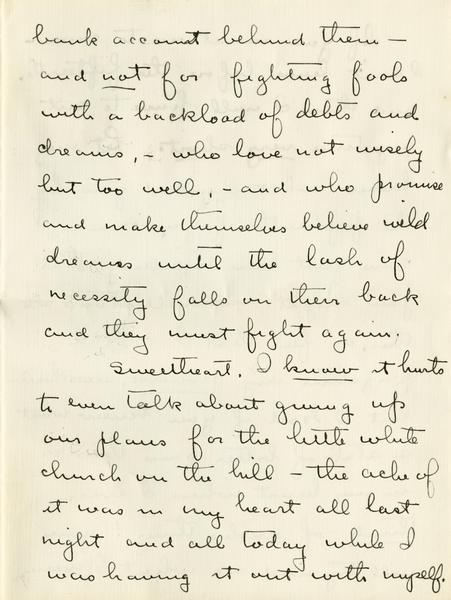 bank account behind them –
and not for fighting fools
with a backload of debts and
dreams, – who love not wisely
but too well, – and who promise
and make themselves believe wild
dreams until the lash of
necessity falls on their back
and they must fight again.
Sweetheart, I know it hurts
to even talk about giving up
our plans for the little white
church on the hill – the ache of
it was in my heart all last
night and all today while I
was having it out with myself.